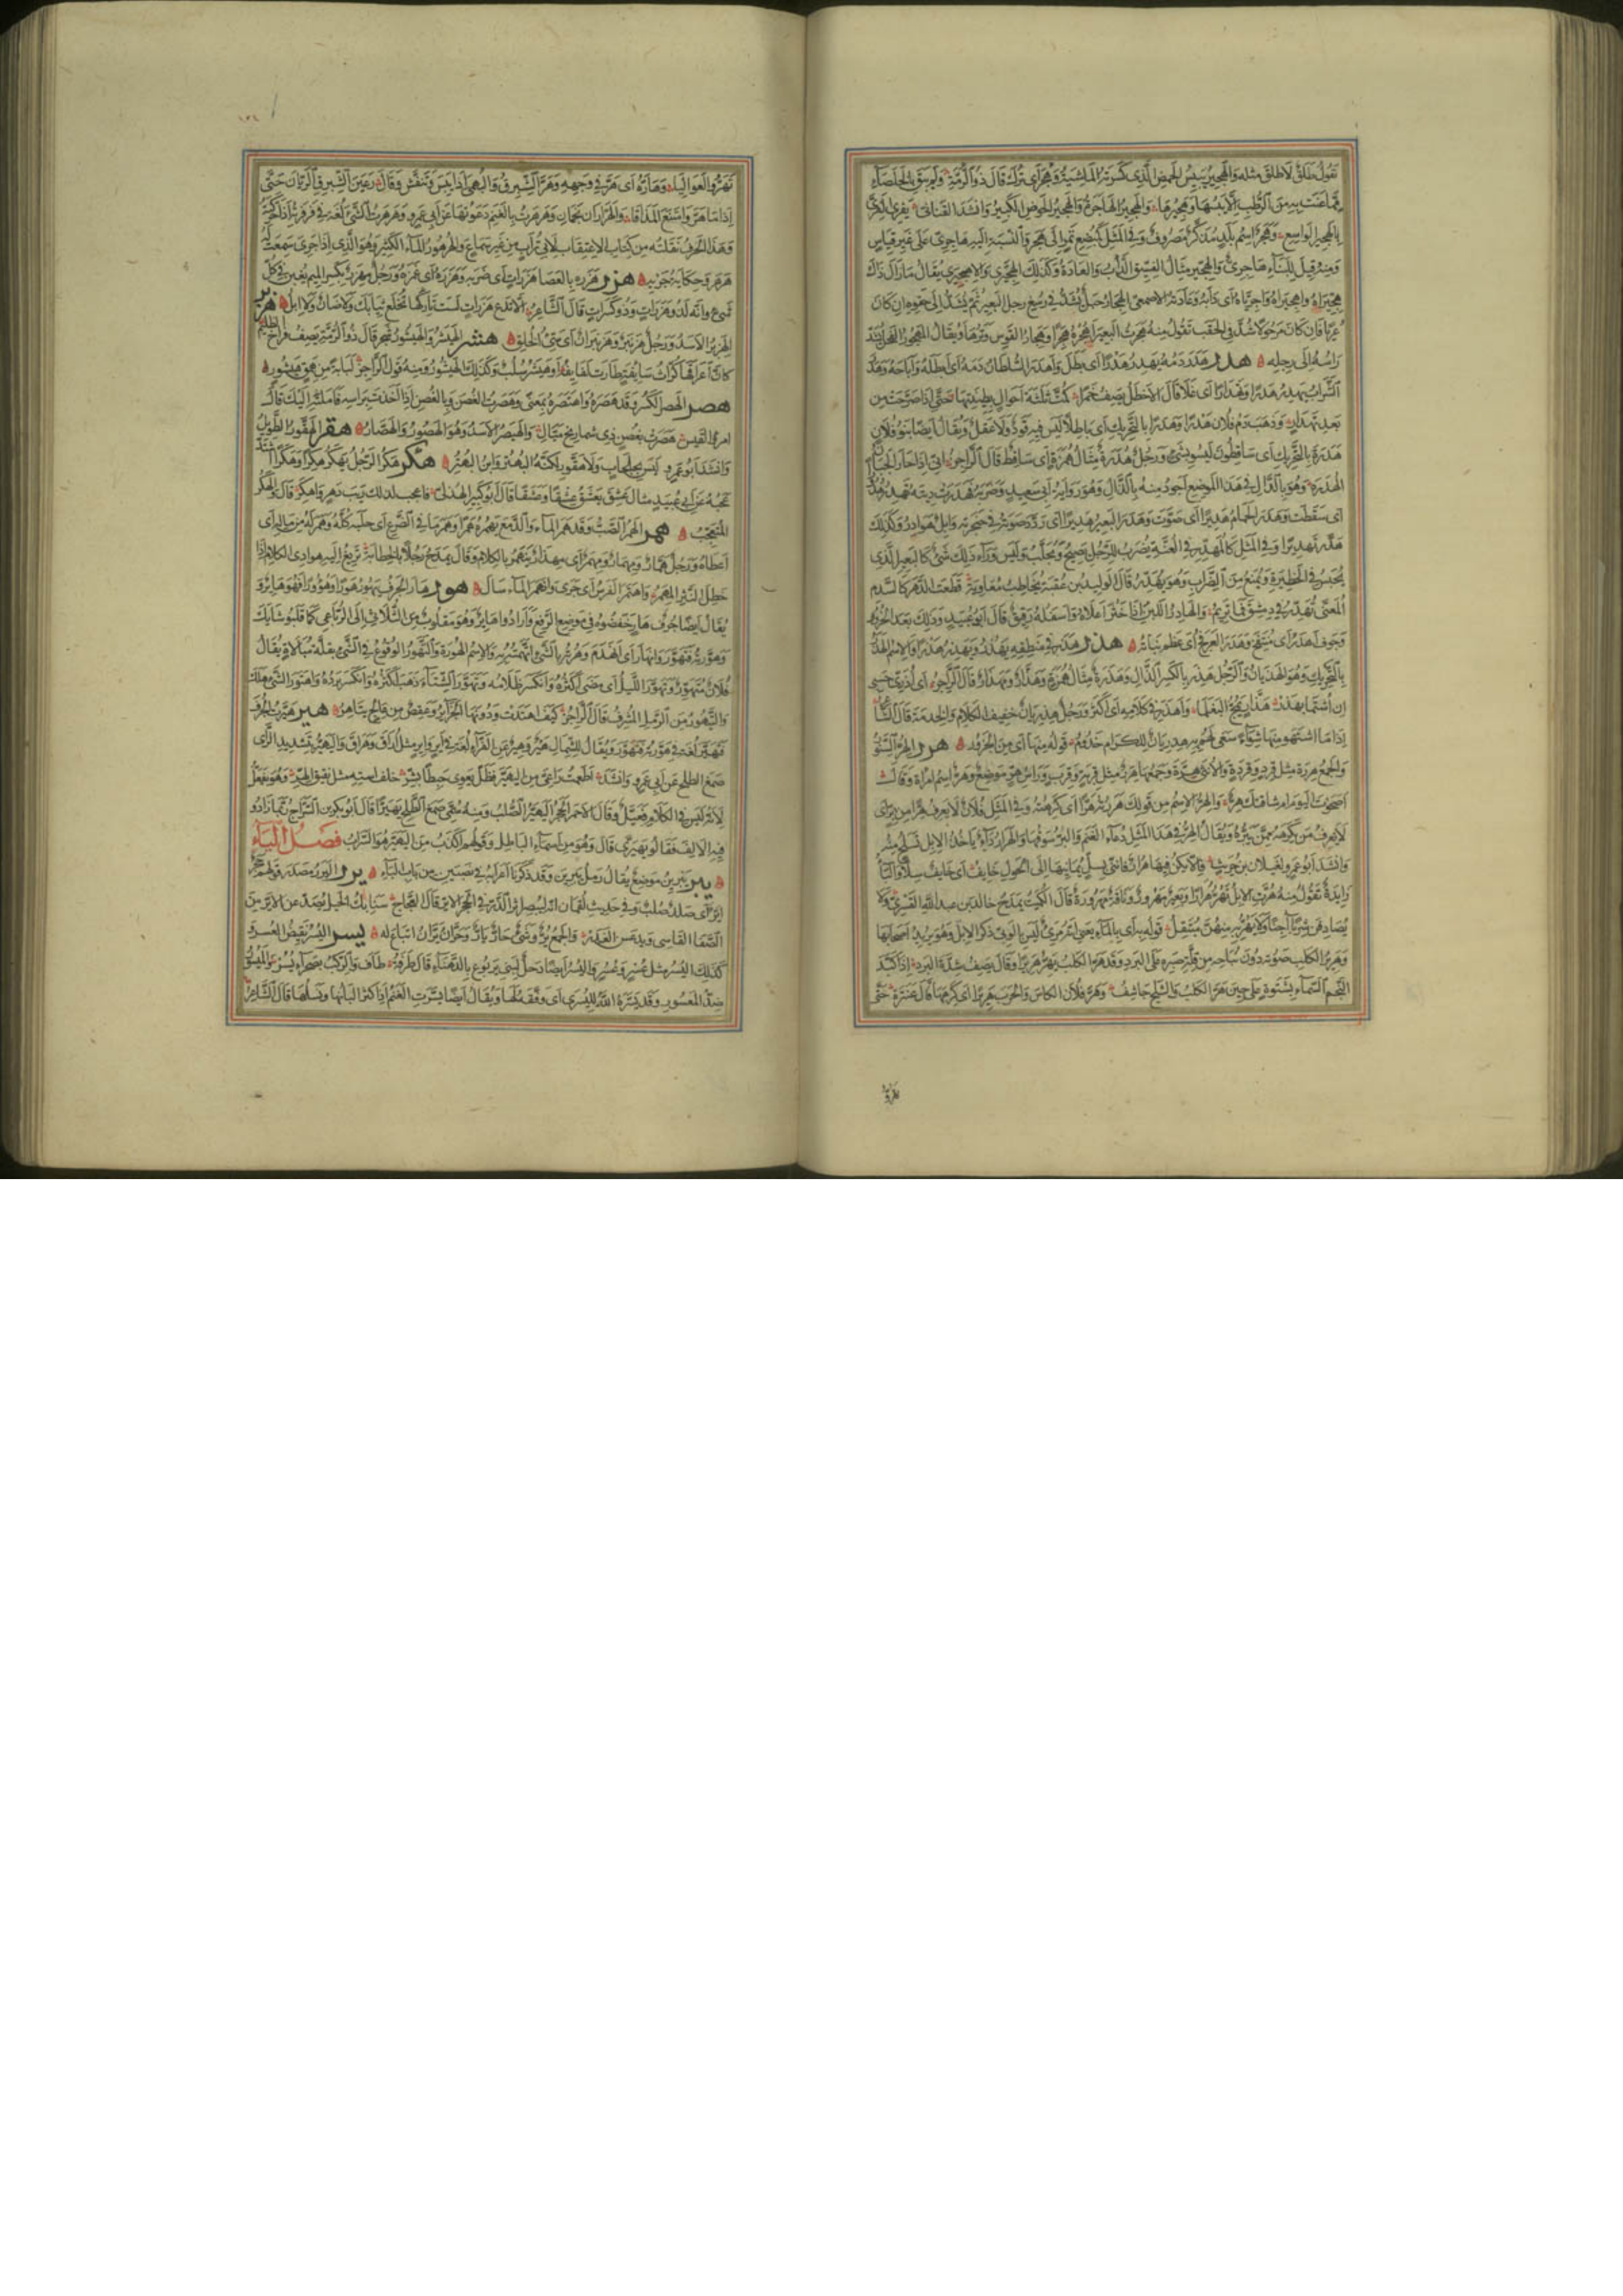 تقول طلق لاطلق مثله والهجير يبيس الحمض الذى كسرته الماشية وهجر اى ترك قال ذو الرمة ولم يبق بالخلصاء
مما عنت به من الرطب الا يبسها وهجيرها والهجير الهاجرة والهجير الحوض الكبير وانشد القنانى يفرى الفرى
بالهجير الواسع وهجر اسم بلد مذكر مصروف وفى المثل كمبضع تمر الى هجر والنسبة اليه هاجرى على غير قياس
ومنه قيل للبناء هاجرى والهجير مثال الفسيق الدأب والعادة وكذلك الهجيرى والاهجيرى يقال ما زال ذاك
هجيراه واهجيراه واجرياه اى دأبه وعادته الاصمعى الهجار حبل يشد فى رسغ رجل البعير ثم يشد الى حقوه ان كان
عريا فان كان مرحولا شد فى الحقب تقول منه هجرت البعير اهجره هجرا وهجار القوس وترها ويقال المهجور الفحل يشد
راسه الى رجله هدر هدر دمه يهدر هدرا اى بطل واهدر السلطان دمه اى ابطله واباحه وهدر
الشراب يهدر هدرا وتهدارا اى غلا قال الاخطل يصف خمرا كمت ثلثة احوال بطينتها حتى اذا صرحت من
بعد تهدار وذهب دم فلان هدرا وهدرا بالتحريك اى باطلا ليس فيه قود ولا عقل ويقال ايضا بنو فلان
هدرة بالتحريك اى ساقطون ليسو بشئ ورجل هدرة مثال همزة اى ساقط قال الراجز انى اذا حار الجبان
الهدرة وهو بالدال فى هذا الموضع اجود منه بالذال وهو رواية ابى سعيد وضربه فهدرت ريته تهدر هدورا
اى سقطت وهدر الحمام هديرا اى صوت وهدر البعير هديرا اى ردد صوته فى حنجرته وابل هوادر وكذلك
هدر تهديرا وفى المثل كالمهدر فى العنة يضرب للرجل يصيح ويجلب وليس وراء ذلك شئ كالبعير الذى
يحبس فى الحظيرة ويمنع من الضراب وهو يهدر قال الوليد بن عقبة يخاطب معاوية قطعت الدهر كالسدم
المعنى تهدر فى دمشق فما تريم والهادر اللبن اذا خثر اعلاه واسفله رقيق قال ابو عبيد وذلك بعد الحزور
وجوف اهدر اى منتفخ وهدر العرفج اى عظم نباته هذر هذر فى منطقه يهذر ويهذر هذرا والاسم الهذر
بالتحريك وهو الهذيان والرجل هذر بالكسر الذال وهذرة مثال همزة وهذار ومهذار قال الراجز اى اذرى حسبى
ان اشتما بهذر هذار يمج البغلما واهذر فى كلامه اى اكثر ورجل هذريان خفيف الكلام والخدمة قال الشاعر
اذا ما اشتهو منها شواء سعى لهم به هذريان للكرام خدوم قوله منها اى من الجزور هرر الهر السنور
والجمع هررة مثل قرد وقردة والانثى هرة وجمعها هرر مثل قربة وقرب وراس هر موضع وهر اسم امراة وقال
اصحوت اليوم ام شاقتك هر والهر الاسم من قولك هررته هرا اى كرهته وفى المثل فلان لا يعرف هرا من بر اى
لا يعرف من يكرهه ممن يبره ويقال الهر فى هذا المثل دعاء الغنم والبر سوقها والهرار داء ياخذ الابل تسلح منه
وانشد ابو عمرو لغيلان بن حريث فالا يكن فيها هرار فاننى بسل يمانيها الى الحول خايف اى خايف سلا والباء
زايدة تقول منه هرت الابل تهر هرارا وبعير مهرور وناقة مهرورة قال الكميت يمدح خالد بن عبد الله القسرى ولا
يصادفن شربا اجنا ولا يهر به منهن مبتقل قوله به اى بالماء يعنى انه مرئ ليس بالوبى ذكر الابل وهو يريد اصحابها
وهرير الكلب صوته دون نباحه من قلة صبره على البرد وقد هر الكلب يهر هريرا وقال يصف شدة البرد اذا كبد
النجم السماء بشتوة على حين هر الكلب والثلج خاشف وهر فلان الكاس والحرب هريرا اى كرهها قال عنترة حتى
تهروا العواليا وهاره اى هر فى وجهه وهر الشبرق والبهمى اذا يبس وتنفش وقال رعين الشبرق الريان حتى
اذا ما هر وامتنع المذاقا والهراران نجمان وهرهرت بالغنم دعوتها عن ابى عمرو وهرهرت الشئ لغة فى فرفرته اذا حركته
وهذا الحرف نقلته من كتاب الاعتقاب لابى تراب من غير سماع والهرهور الماء الكثير وهو الذى اذا جرى سمعت له
هرهر وحكاية جريه هزر هزره بالعصا هزرات اى ضربه وهزره اى غمزه ورجل مهزر بكسر الميم يغبن فى كل
شئ وانه لذو هزرات وذو كسرات قال الشاعر الا تدع هزرات لست تاركها تخلع ثيابك لا ضان ولا ابل هزبر
الهزبر الاسد ورجل هزنبر وهزنبران اى سيئ الخلق هشر الهيشر والهيشور شجر قال ذو الرمة يصف فراخ الظليم
كان اعناقها كراث سايفة طارت لفايفه او هيشر سلب وكذلك الهيشور ومنه قول الراجز لباية من همق هيشور
هصر الهصر الكسر وقد هصره واهتصره بمعنى وهصرت الغصن وبالغصن اذا اخذت براسه فاملته اليك قال
امرؤ القيس هصرت بغصن ذى شماريخ ميال والهيصر الاسد وهو الهصور والهصار هقر الهقور الطويل
وانشد ابو عمرو ليس بجلحاب ولا هقور لكنه البهتر وابن البهتر هكر هكر الرجل يهكر هكرا وهكرا اشتد
عجبه عن ابى عبيد مثال عشق يعشق عشقا وعشقا قال ابو كبير الهذلى فاعجب لذلك ريب دهر واهكر قال والهكر
المتعجب همر الهمر الصب وقد همر الماء والدمع يهمره همرا وهمر ما فى الضرع اى حلبه كله وهمر له من ماله اى
اعطاه ورجل همار ومهمار ومهمر اى مهذار ينهمر بالكلام وقال يمدح رجلا بالخطابة تريغ اليه هوادى الكلام اذا
خطل النثر المهمر واهتمر الفرس اى جرى وانهمر الماء سال هور هار الجرف يهور هورا وهوورا فهو هاير و
يقال ايضا جرف هار خفضوه فى موضع الرفع وارادوا هاير وهو مقلوب من الثلاثى الى الرباعى كما قلبو شايك
وهورته فتهور وانهار اى انهدم وهرته بالشئ اتهمته به والاسم الهورة والتهور الوقوع فى الشئ بقلة مبالاة يقال
فلان متهور وتهور الليل اى مضى اكثره وانكسر ظلامه وتهور الشتاء ذهب اكثره وانكسر برده واهتور الشئ هلك
والتيهور من الرمل المشرف قال الراجز كيف اهتدت ودونها الجزاير وعقص من عالج تياهر هير هيرت الجرف
فتهير لغة فى هورته فتهور ويقال للشمال هير وهير عن الفراء لغة فى اير واير مثل اراق وهراق واليهير بتشديد الراى
صمغ الطلح عن ابى عمرو وانشد اطعمت راعى من اليهير فظل يعوى حبطا بشر خلف استه مثل نقيق الهر وهو يفعل
لانه ليس فى الكلام فعيل وقال الاحمر الحجر اليهير الصلب ومنه سمى صمغ الطلح يهيرا قال ابو بكر بن السراج ربما زادو
فيه الالف فقالو يهيرى قال وهو من اسماء الباطل وقولهم اكذب من اليهير هو السراب فصل الياء
يبر يبرين موضع يقال رمل يبرين وقد ذكرنا اعرابه فى نصيبين من باب الباء يرر اليرر مصدر قولهم حجر
اير اى صلد صلب وفى حديث لقمان انه ليبصر اثر الذر فى الحجر الاير قال العجاج سنابك الخيل يصدعن الاير من
الصفا القاسى ويدعسن الغدر والجمع ير وشئ حار يار وحران يران اتباع له يسر اليسر نقيض العسر و
كذلك اليسر مثل عسر وعسر واليسر ايضا دحل لبنى يربوع بالدهناء قال طرفة طاف والركب بصحراء يسر والميسور
ضد المعسور وقد يسره الله لليسرى اى وفقه لها ويقال ايضا يسرت الغنم اذا كثر البانها ونسلها قال الشاعر